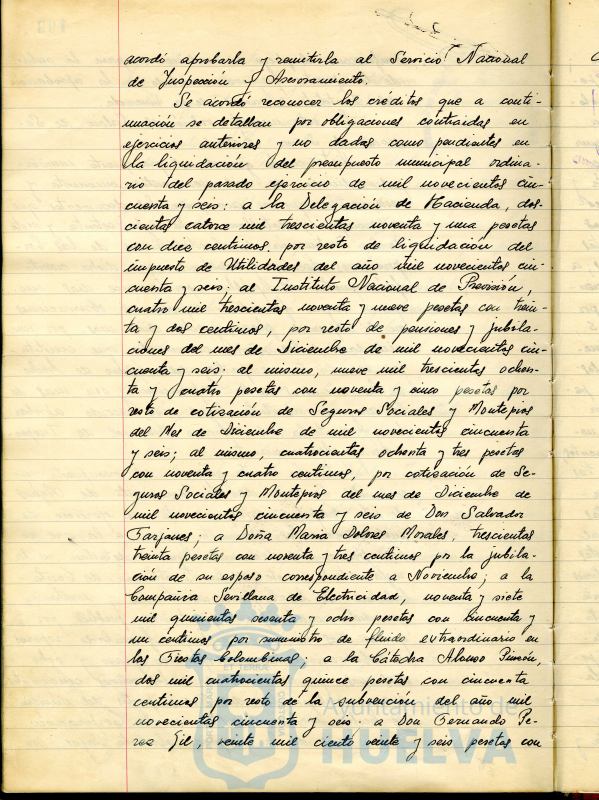 acordó aprobarla y remitirla al Servicio Nacional
de Inspección y Asesoramiento.
Se acordó reconocer los créditos que a conti-
nuación se detallan por obligaciones contraidas en
ejercicios anteriores y no dadas como pendientes en
la liquidación del presupuesto municipal ordina-
rio del pasado ejercicio de mil novecientos cin-
cuenta y seis: a la Delegación de Hacienda, dos-
cientas catorce mil trescientas noventa y una pesetas
con diez centimos, por resto de liquidación del
impuesto de Utilidades del año mil novecientos cin-
cuenta y seis; al Instituto Nacional de Previsión,
cuatro mil trescientas noventa y nueve pesetas con trein-
ta y dos centimos, por resto de pensiones y jubila-
ciones del mes de Diciembre de mil novecientos cin-
cuenta y seis. al mismo, nueve mil trescientas ochen-
ta y cuatro pesetas con noventa y cinco pesetas por
resto de cotización de Seguros Sociales y Montepios
del Mes de Diciembre de mil novecientos cincuenta
y seis; al mismo, cuatrocientas ochenta y tres pesetas
con noventa y cuatro centimos, por cotización de Se-
guros Sociales y Montepios del mes de Diciembre de
mil novecientos cincuenta y seis de Don Salvador
Farjanes; a Doña María Dolores Morales, trescientas
treinta pesetas con noventa y tres centimos por la jubila-
ción de su esposo correspondiente a Noviembre; a la
Compañia Sevillana de Electricidad, noventa y siete
mil quinientas sesenta y ocho pesetas con cincuenta y
un centimos por suministro de fluido extraordinario en
las Fiestas Colombinas; a la Cátedra Alonso Pinzón,
dos mil cuatrocientas quince pesetas con cincuenta
centimos por resto de la subvención del año mil
novecientas cincuenta y seis. a Don Fernando Pe-
rez Gil, veinte mil ciento veinte y seis pesetas con
Ayuntamiento de
HUELVA